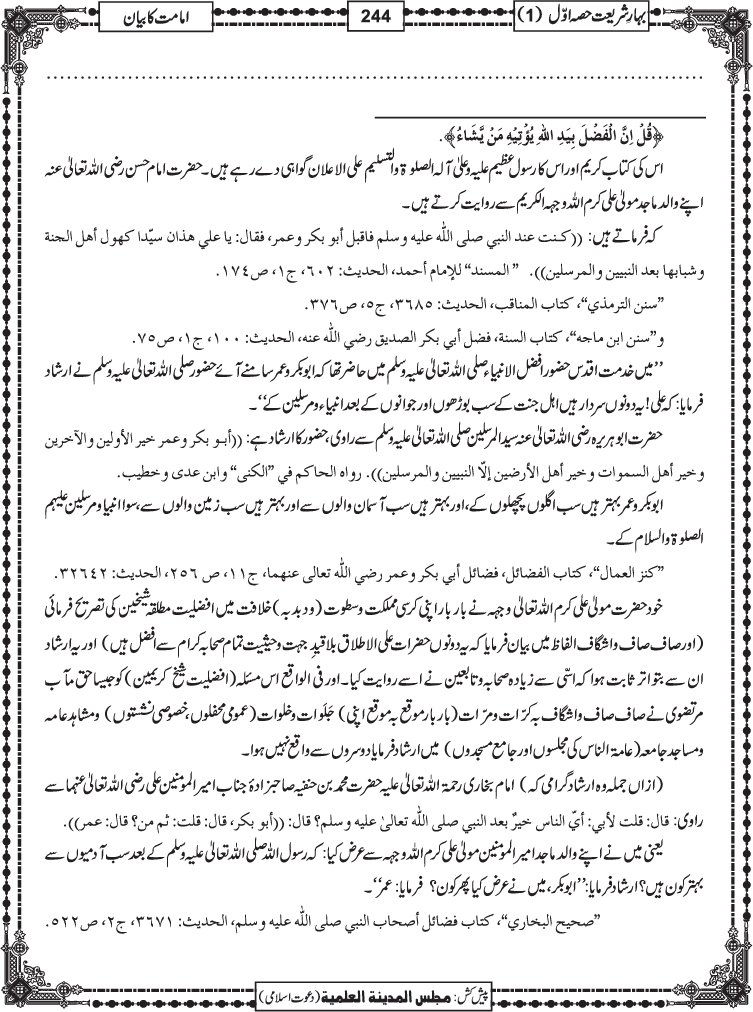 بہارِ شریعت حصہ اوّل (1)
244
امامت کا بیان
........................................................................................................................
﴿قُلْ اِنَّ الْفَضْلَ بِیَدِ اللّٰهِ یُؤْتِیْهِ مَنْ یَّشَآءُ﴾.
اس کی کتاب کریم اور اس کا رسول عظیم علیہ وعلیٰ آلہ الصلوۃ والتسلیم علی الاعلان گواہی دے رہے ہیں۔ حضرت امام حسن رضی اللہ تعالیٰ عنہ
اپنے والد ماجد مولیٰ علی کرم اللہ وجہہ الکریم سے روایت کرتے ہیں۔
کہ فرماتے ہیں: ((كنت عند النبي صلى الله عليه وسلم فاقبل أبو بكر وعمر، فقال: يا علي هذان سيّدا كهول أهل الجنة
وشبابها بعد النبيين والمرسلين)). ”المسند“ للإمام أحمد، الحديث: ٦٠٢، ج١، ص١٧٤.
”سنن الترمذي“، كتاب المناقب، الحديث: ٣٦٨٥، ج٥، ص٣٧٦.
و”سنن ابن ماجه“، كتاب السنة، فضل أبي بكر الصديق رضي الله عنه، الحديث: ١٠٠، ج١، ص٧٥.
’’میں خدمت اقدس حضور افضل الانبیاء صلی اللہ تعالیٰ علیہ وسلم میں حاضر تھا کہ ابوبکر وعمر سامنے آئے حضور صلی اللہ تعالیٰ علیہ وسلم نے ارشاد
فرمایا: کہ علی! یہ دونوں سردار ہیں اہل جنت کے سب بوڑھوں اور جوانوں کے بعد انبیاء ومرسلین کے‘‘۔
حضرت ابو ہریرہ رضی اللہ تعالیٰ عنہ سید المرسلین صلی اللہ تعالیٰ علیہ وسلم سے راوی، حضور کا ارشاد ہے: ((أبو بكر وعمر خير الأولين والآخرين
وخير أهل السموات وخير أهل الأرضين إلّا النبيين والمرسلين)). رواه الحاكم في ”الكنى“ وابن عدى وخطيب.
ابوبکر وعمر بہتر ہیں سب اگلوں پچھلوں کے، اور بہتر ہیں سب آسمان والوں سے اور بہتر ہیں سب زمین والوں سے، سوا انبیا ومرسلین علیہم
الصلوۃ والسلام کے۔
”كنز العمال“، كتاب الفضائل، فضائل أبي بكر وعمر رضي الله تعالى عنهما، ج١١، ص ٢٥٦، الحديث: ٣٢٦٤٢.
خود حضرت مولیٰ علی کرم اللہ تعالیٰ وجہہ نے بار بار اپنی کرسی مملکت وسطوت (ودبدبہ) خلافت میں افضلیت مطلقہ شیخین کی تصریح فرمائی
(اور صاف صاف واشگاف الفاظ میں بیان فرمایا کہ یہ دونوں حضرات علی الاطلاق بلا قیدِ جہت وحیثیت تمام صحابہ کرام سے افضل ہیں) اور یہ ارشاد
ان سے بتواتر ثابت ہوا کہ اسّی سے زیادہ صحابہ وتابعین نے اسے روایت کیا۔ اور فی الواقع اس مسئلہ (افضلیت شیخ کریمین) کو جیسا حق مآب
مرتضوی نے صاف صاف واشگاف بہ کرّات ومرّات (بار بار موقع بہ موقع اپنی) جَلَوات وخلوات (عمومی محفلوں، خصوصی نشستوں) ومشاہد عامہ
ومساجد جامعہ (عامۃ الناس کی مجلسوں اور جامع مسجدوں) میں ارشاد فرمایا دوسروں سے واقع نہیں ہوا۔
(ازاں جملہ وہ ارشاد گرامی کہ) امام بخاری رحمۃ اللہ تعالیٰ علیہ حضرت محمد بن حنفیہ صاحبزادۂ جناب امیر المومنین علی رضی اللہ تعالیٰ عنہما سے
راوی: قال: قلت لأبي: أيّ الناس خيرٌ بعد النبي صلى الله تعالىٰ عليه وسلم؟ قال: ((أبو بكر، قال: قلت: ثم من؟ قال: عمر)).
یعنی میں نے اپنے والد ماجد امیر المومنین مولیٰ علی کرم اللہ وجہہ سے عرض کیا: کہ رسول اللہ صلی اللہ تعالیٰ علیہ وسلم کے بعد سب آدمیوں سے
بہتر کون ہیں؟ ارشاد فرمایا: ’’ابوبکر، میں نے عرض کیا پھر کون؟ فرمایا: عمر‘‘۔
”صحيح البخاري“، كتاب فضائل أصحاب النبي صلى الله عليه وسلم، الحديث: ٣٦٧١، ج٢، ص٥٢٢.
پیش کش: مجلس المدینة العلمیة (دعوت اسلامی)